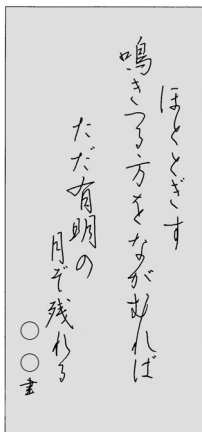 ほととぎす
鳴きつる方をながむれば
ただ有明の
月ぞ残れる
○○書